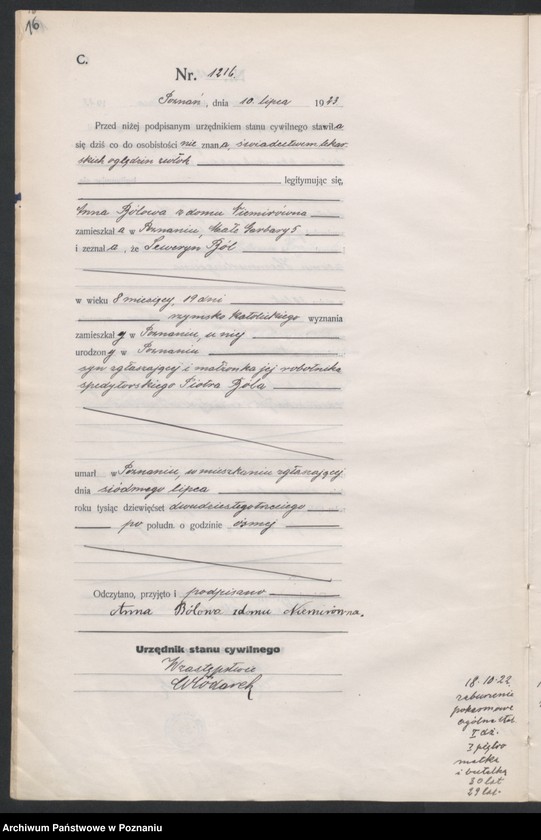 16
C.
Nr. 1216
Poznań, dnia 10 lipca 1923
Przed niżej podpisanym urzędnikiem stanu cywilnego stawiła
się dziś co do osobistości nie znana, świadectwem lekar-
skich oględzin zwłok
legitymując się,
Anna Bólowa z domu Niemirówna
zamieszkała w Poznaniu, Małe Garbary 5
i zeznała, że Seweryn Ból
w wieku 8 miesięcy, 19 dni
rzymsko katolickiego wyznania
zamieszkały w Poznaniu, u niej
urodzony w Poznaniu
syn zgłaszającej i małżonka jej robotnika
spedytorskiego Piotra Bóla
umarł w Poznaniu, w mieszkaniu zgłaszającej
dnia siódmego lipca
roku tysiąc dziewięćset dwudziestego trzeciego
po połudn. o godzinie ósmej
Odczytano, przyjęto i podpisano
Anna Bólowa z domu Niemirówna.
Urzędnik stanu cywilnego
W zastępstwie
Włodarek
18.10.22
zaburzenie
pokarmowe
ogólna
I dz.
3 piętro
matka
i butelką
30 lat
29 lat.
Archiwum Państwowe w Poznaniu